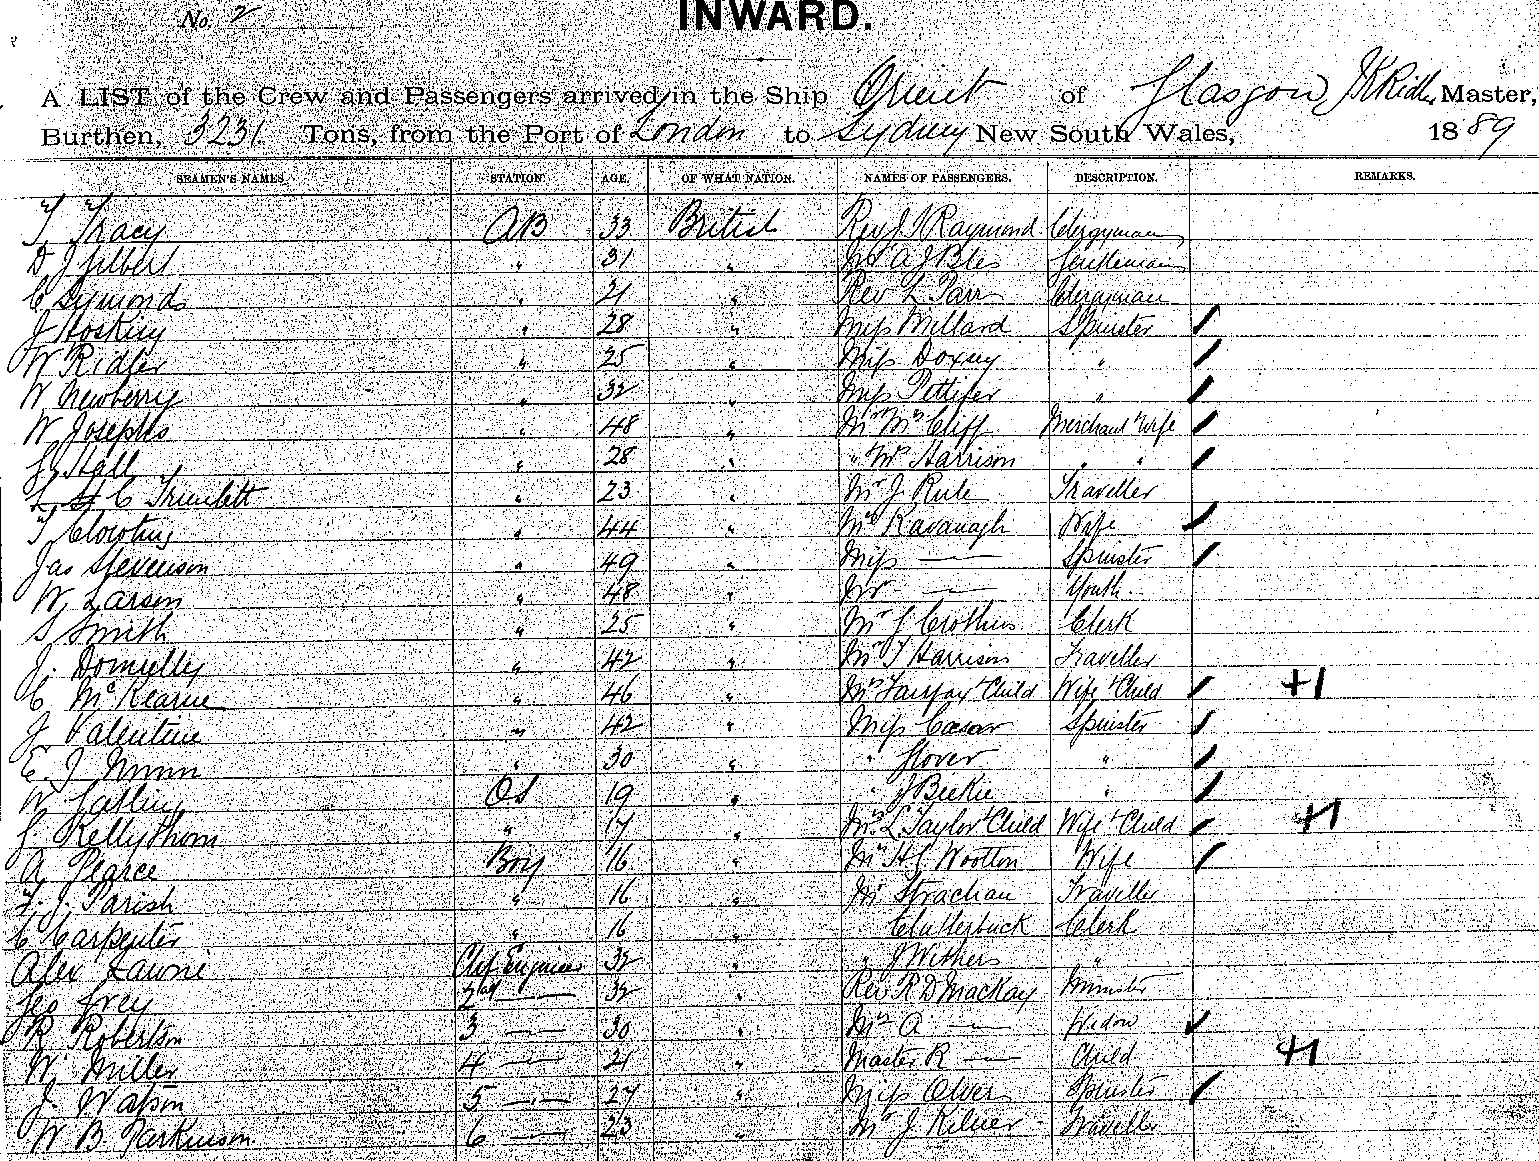 No. 2
INWARD.
A LIST of the Crew and Passengers arrived in the Ship Orient of Glasgow, Master,
Burthen, 3231 Tons, from the Port of London to Sydney New South Wales, 1889
SEAMEN'S NAMES STATION. AGE. OF WHAT NATION. NAMES OF PASSENGERS. DESCRIPTION. REMARKS.
T Tracy AB 33 British Rev J Raymond Clergyman
D J Gilbert " 31 " Mr A J Bles Gentleman
C Symonds " 21 " Rev L Parr Clergyman
J Hosking " 28 " Miss Millard Spinster
W Ridler " 25 " Miss Doxey "
W Newberry " 32 " Miss Pettifer "
W Josephs " 48 " Mr Mrs Cliff Merchant & Wife
Hall " 28 " " Mrs Harrison " "
C " 23 " Mr J Rule Traveller
T " 44 " Mrs Kavanagh Wife
Jas Stevenson " 49 " Miss — Spinster
W Larsen " 48 " Mr — Youth
S Smith " 25 " Mr Clerk
J. Donnelly " 42 " Mr T Harrison Traveller
C McKearne " 46 " Mrs Fairfax & Child Wife & Child +1
J Valentine " 42 " Miss Caesar Spinster
E. J Nunn " 30 " " Glover "
W Catling OS 19 " " J Beekie "
Kellythorn " 17 " Mrs L Taylor & Child Wife & Child +1
A Pearce Boy 16 " Mrs H C Wootton Wife
J. Parish " 16 " Mr Strachan Traveller
C Carpenter " 16 " Clutterbuck Clerk
Alex Lawrie Chf Engineer 32 " " J Withers "
Geo Grey 2nd — 32 " Rev R D Mackay Minister
R Robertson 3 — 30 " Mrs A — Widow
W. Miller 4 — 21 " Master R — Child +1
J. Watson 5 — 27 " Miss Olver Spinster
W B Parkinson 6 — 23 " Mr J Kilner Traveller